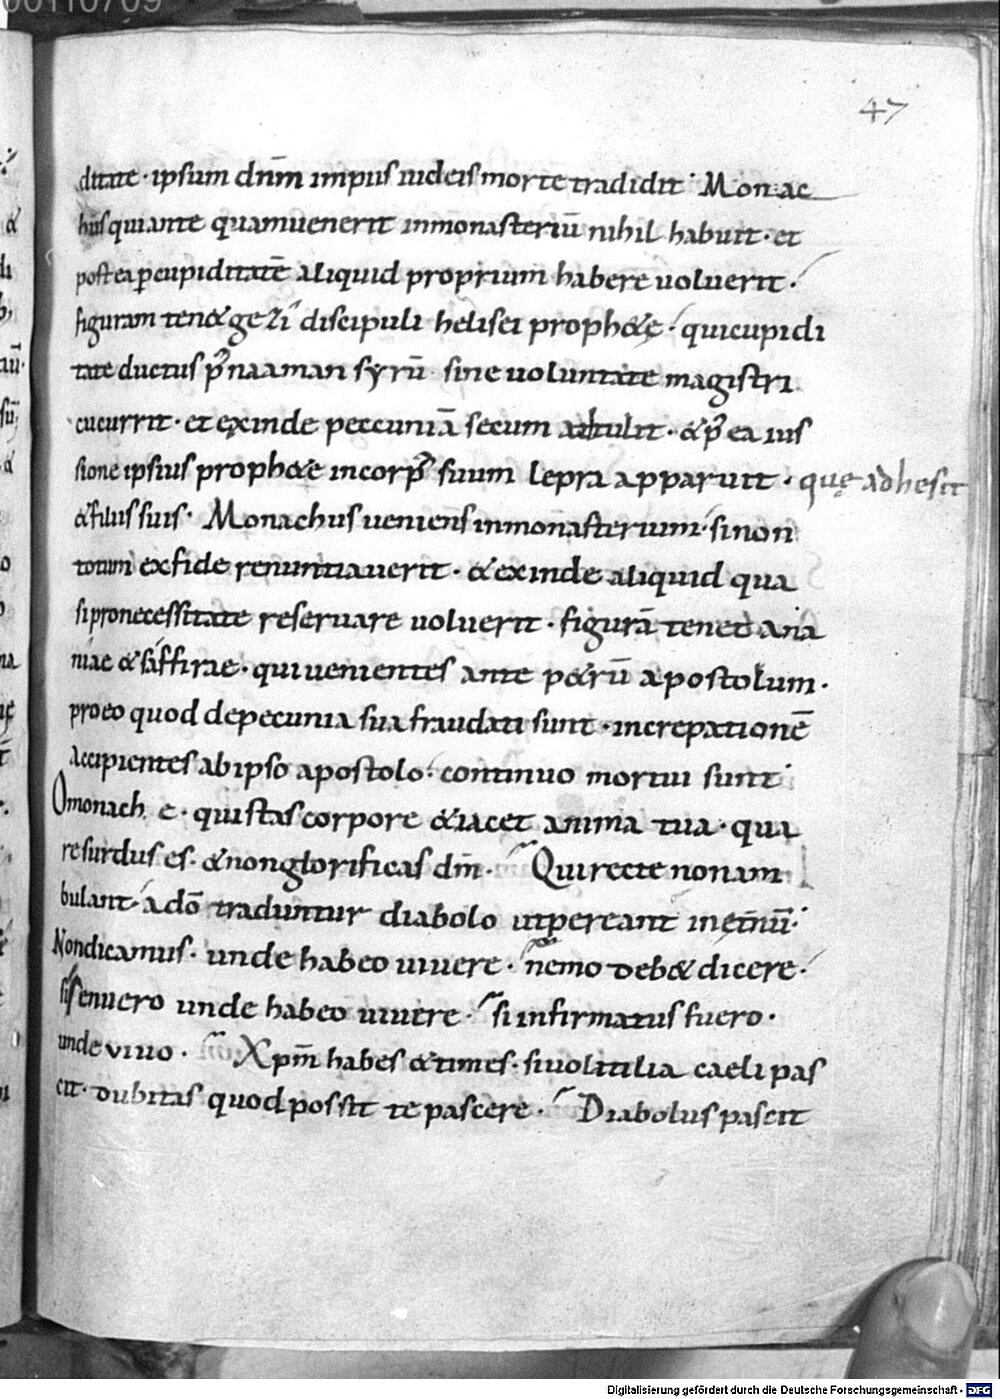 00110709
47
ditate · ipsum dn̄m impiis iudeis morte tradidit · Monac
hus qui ante quam uenerit in monasteriū nihil habuit · et
postea p cupiditatē aliquid proprium habere uoluerit ·
figuram ten& gezi discipuli helisei proph&ę · qui cupidi
tate ductus p̄ naaman syrū sine uoluntate magistri
cucurrit · et exinde peccuniā secum attulit · & p̄ ea ius
sione ipsius proph&e in corp̄ suum lepra apparuit · quę adhesit
& filiis suis · Monachus ueniens in monasterium · si non
totum ex fide renuntiauerit · & exinde aliquid qua
si pro necessitate reseruare uoluerit · figurā tenet ana
niae & saffirae · qui uenientes ante p&rū apostolum ·
pro eo quod de pecunia sua fraudati sunt · increpationē
accipientes ab ipso apostolo · continuo mortui sunt ·
O monach e · qui stas corpore & iacet anima tua · qua
re surdus es · & non glorificas dm̄ · Qui recte non am
bulant · a dō traduntur diabolo ut pereant in et̄nū ·
Non dicamus · unde habeo uiuere · nemo deb& dicere ·
si senuero unde habeo uiuere · si infirmatus fuero ·
unde viuo · Xpm̄ habes & times · si uolitilia caeli pas
cit · dubitas quod possit te pascere · Diabolus pascit
Digitalisierung gefördert durch die Deutsche Forschungsgemeinschaft - DFG